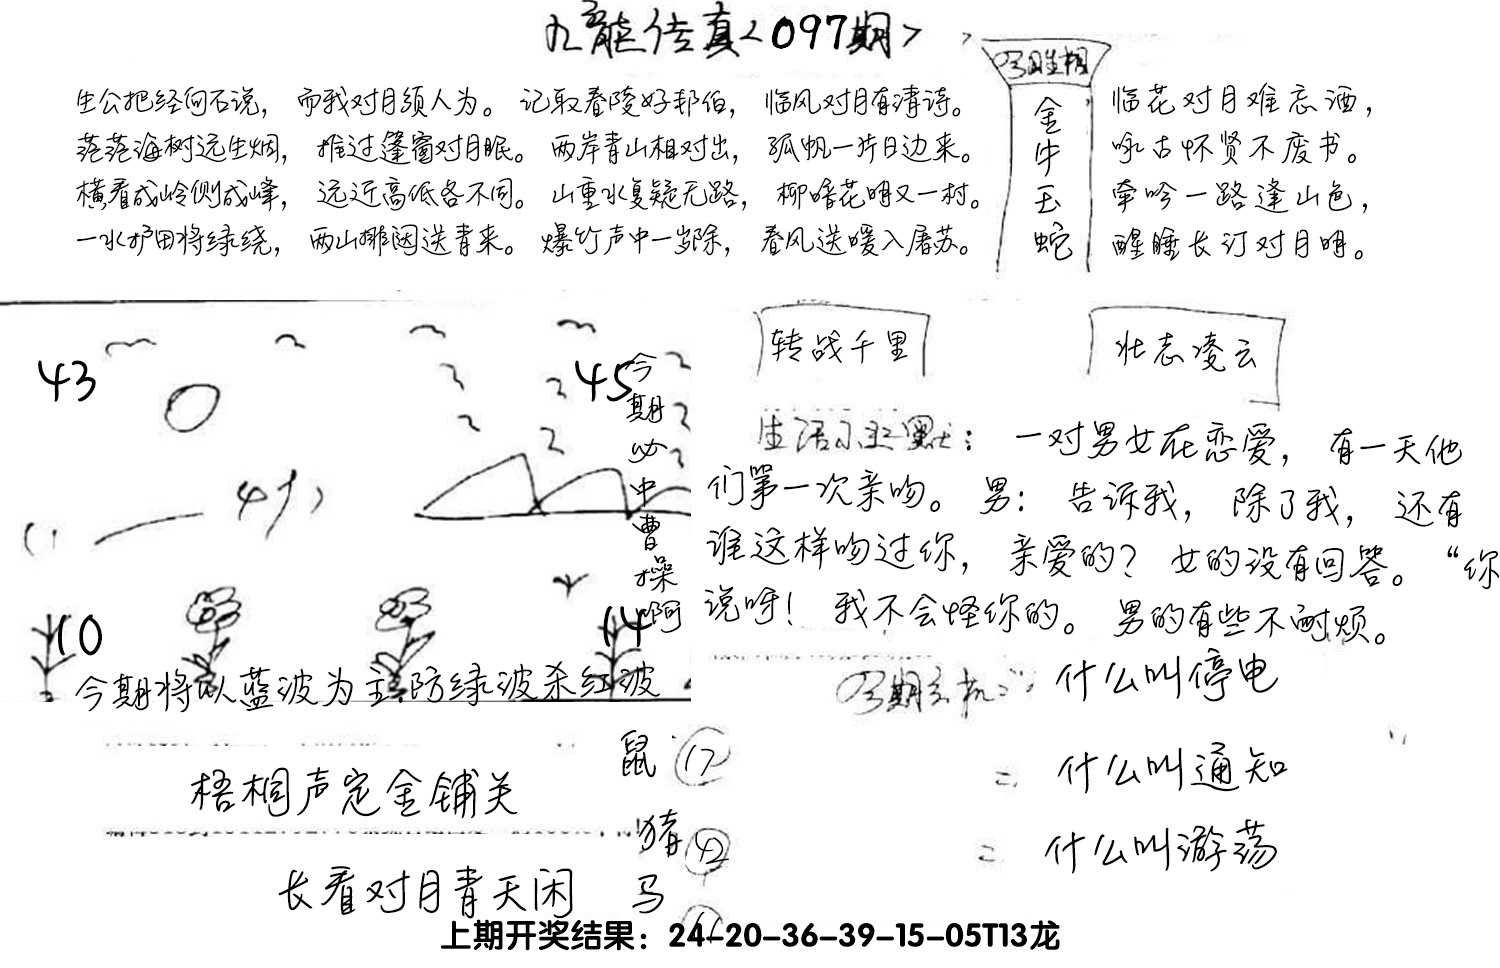 九龙传真<097期>
生公把经向石说，而我对月须人为。记取春陵好邦伯，临风对月有清诗。
茫茫海树远生烟，推过篷窗对月眠。两岸青山相对出，孤帆一片日边来。
横看成岭侧成峰，远近高低各不同。山重水复疑无路，柳暗花明又一村。
一水护田将绿绕，两山排闼送青来。爆竹声中一岁除，春风送暖入屠苏。
金牛玉蛇
临花对月难忘酒，
咏古怀贤不废书。
牵吟一路逢山色，
醒睡长汀对月明。
43
45
10
14
今期必中曹操啊
今期将以蓝波为主防绿波杀红波
转战千里
壮志凌云
一对男女在恋爱，有一天他
们第一次亲吻。男：告诉我，除了我，还有
谁这样吻过你，亲爱的？女的没有回答。“你
说呀！我不会怪你的。男的有些不耐烦。
什么叫停电
什么叫通知
什么叫游荡
梧桐声定金铺关
长看对月青天闲
鼠 17
猪 42
马
上期开奖结果：24-20-36-39-15-05T13龙